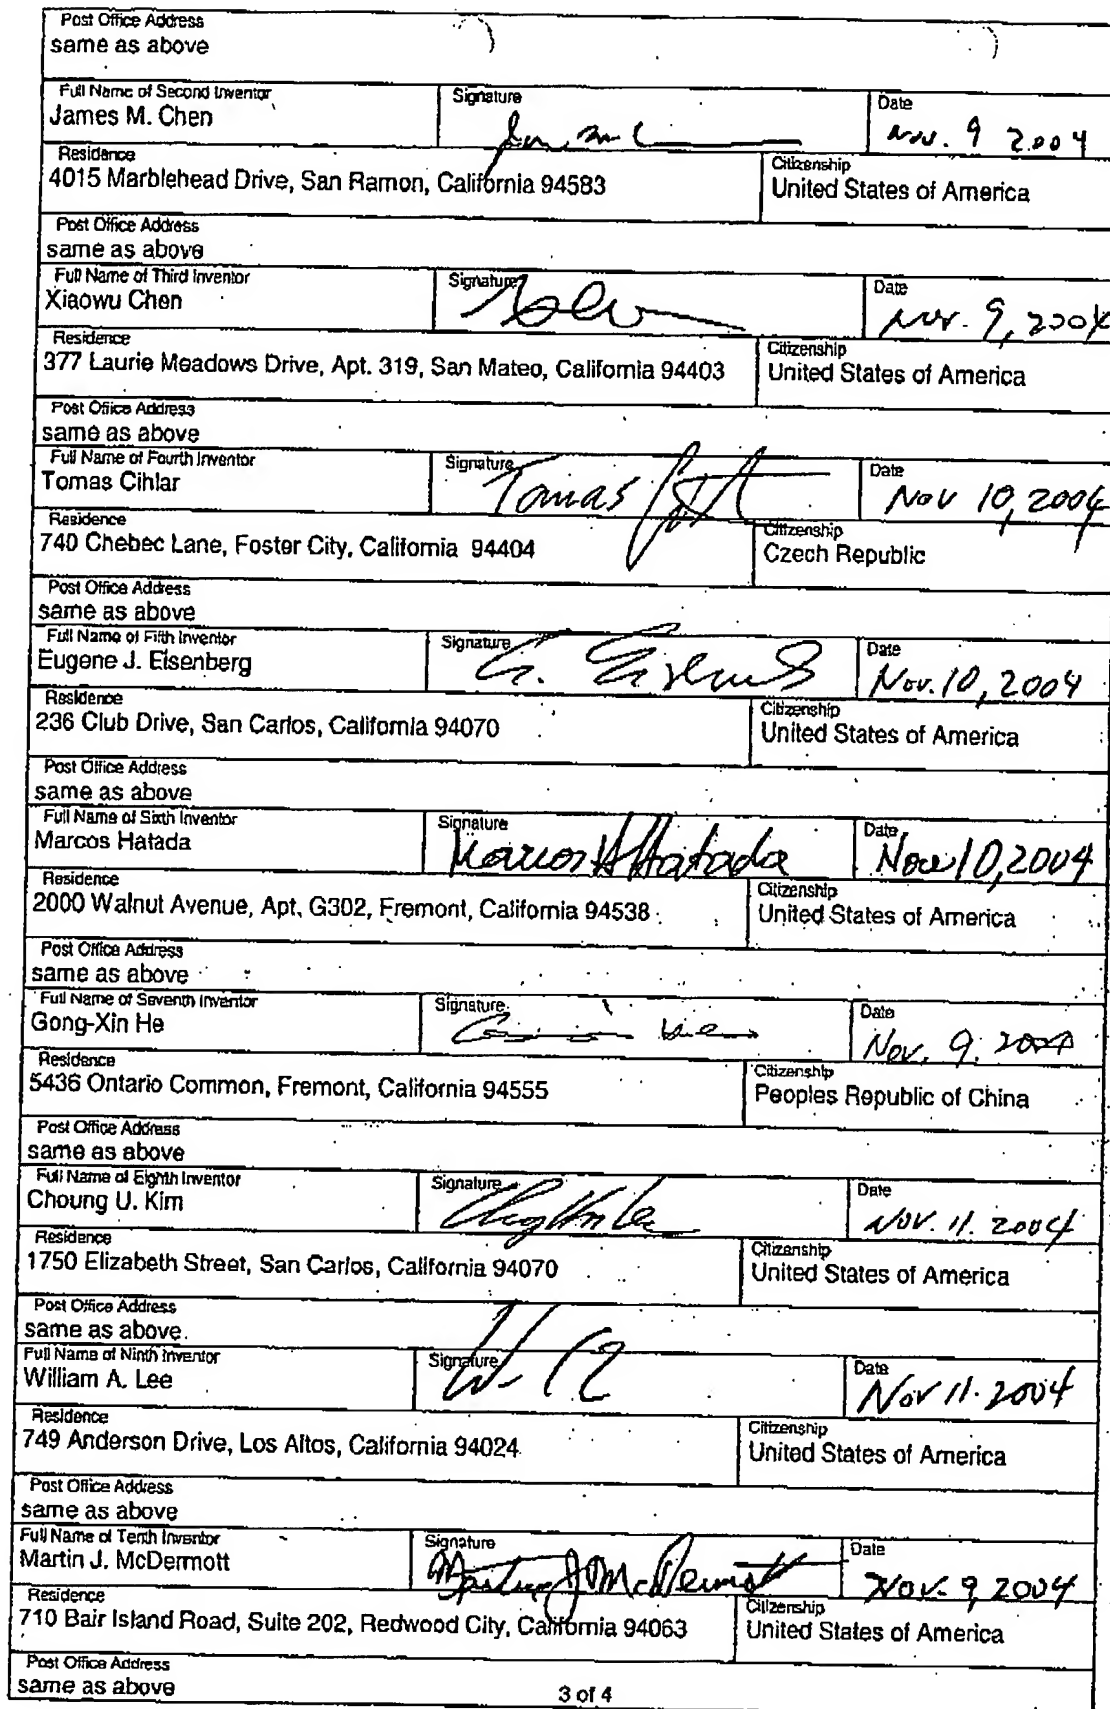 Post Office Address
same as above
Full Name of Second Inventor
James M. Chen
Signature
Date
Nov. 9 2004
Residence
4015 Marblehead Drive, San Ramon, California 94583
Citizenship
United States of America
Post Office Address
same as above
Full Name of Third Inventor
Xiaowu Chen
Signature
Date
Nov. 9, 2004
Residence
377 Laurie Meadows Drive, Apt. 319, San Mateo, California 94403
Citizenship
United States of America
Post Office Address
same as above
Full Name of Fourth Inventor
Tomas Cihlar
Signature
Tomas
Date
Nov 10, 2004
Residence
740 Chebec Lane, Foster City, California 94404
Citizenship
Czech Republic
Post Office Address
same as above
Full Name of Fifth Inventor
Eugene J. Eisenberg
Signature
Date
Nov. 10, 2004
Residence
236 Club Drive, San Carlos, California 94070
Citizenship
United States of America
Post Office Address
same as above
Full Name of Sixth Inventor
Marcos Hatada
Signature
Marcos H Hatada
Date
Nov 10, 2004
Residence
2000 Walnut Avenue, Apt. G302, Fremont, California 94538
Citizenship
United States of America
Post Office Address
same as above
Full Name of Seventh Inventor
Gong-Xin He
Signature
Date
Nov. 9. 2004
Residence
5436 Ontario Common, Fremont, California 94555
Citizenship
Peoples Republic of China
Post Office Address
same as above
Full Name of Eighth Inventor
Choung U. Kim
Signature
Date
Nov. 11. 2004
Residence
1750 Elizabeth Street, San Carlos, California 94070
Citizenship
United States of America
Post Office Address
same as above
Full Name of Ninth Inventor
William A. Lee
Signature
Date
Nov 11. 2004
Residence
749 Anderson Drive, Los Altos, California 94024
Citizenship
United States of America
Post Office Address
same as above
Full Name of Tenth Inventor
Martin J. McDermott
Signature
Martin J McDermott
Date
Nov. 9, 2004
Residence
710 Bair Island Road, Suite 202, Redwood City, California 94063
Citizenship
United States of America
Post Office Address
same as above
3 of 4